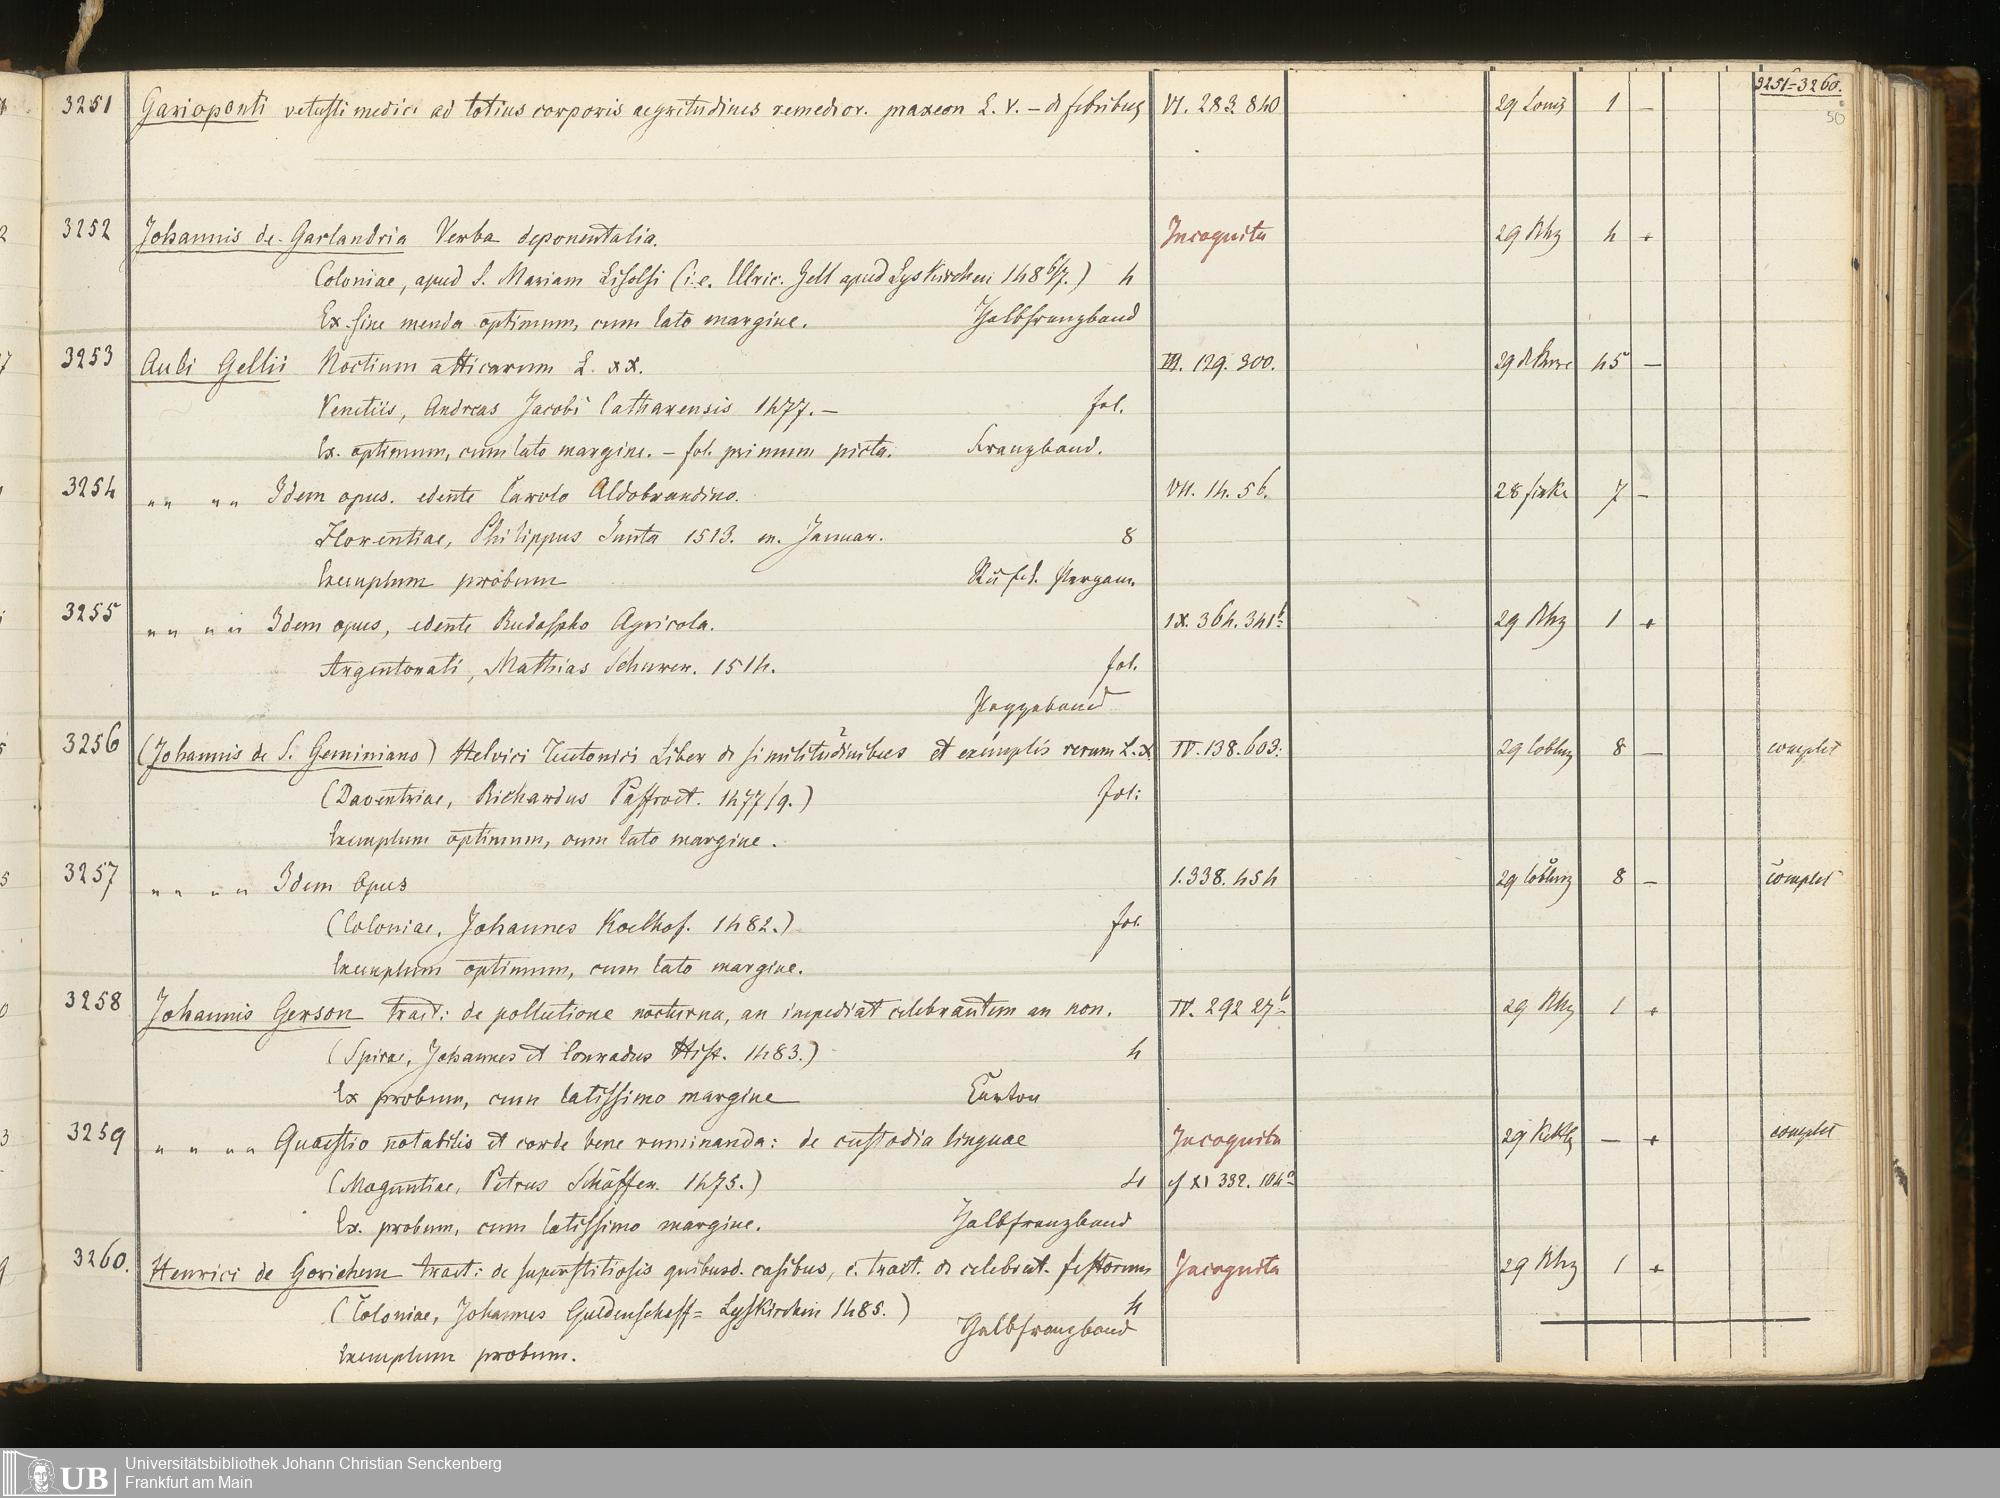 3251=3260.
50
3251 Garioponti vetusti medici ad totius corporis aegritudines remedior. praxeon L. V. – de febribus VI. 283. 840 29 Louis 1 –
3252 Johannis de Garlandria Verba deponentalia. Incognita 29 Rhz 4 +
Coloniae, apud S. Mariam Lisolfi (i.e. Ulric. Zell apud Lyskirchen 148 6/7.) 4
Ex. sine menda optimum, cum lato margine. Halbfranzband
3253 Auli Gellii Noctium atticarum L. XX. III. 129. 300. 45 –
Venetiis, Andreas Jacobi Catharensis 1477. – fol.
Ex. optimum, cum lato margine. – fol. primum picta. Franzband.
3254 " " " " Idem opus. edente Carolo Aldobrandino. VII. 14. 56. 7 –
Florentiae, Philippus Junta 1513. m. Januar. 8
Exemplum probum Pergam
3255 " " " " Idem opus, edente Rudolpho Agricola. IX. 364. 341b 29 Rhz 1 +
Argentorati, Mathias Schurer. 1514. fol.
Pappband
3256 (Johannis de S. Geminiano) Helvici Teutonici Liber de similitudinibus et exemplis rerum L. X. IV. 138. 603. 29 Coblnz 8 – complet
(Daventriae, Richardus Paffroet. 1477/9.) fol:
Exemplum optimum, cum lato margine.
3257 " " " " Idem Opus 1. 338. 454 29 Coblnz 8 – complet
(Coloniae, Johannes Koelhof. 1482.) fol.
Exemplum optimum, cum lato margine.
3258 Johannis Gerson tract: de pollutione nocturna, an impediat celebrantem an non. IV. 292 27b 29 Rhz 1 +
(Spirae, Johannes et Conradus Hist. 1483.) 4
Ex probum, cum latissimo margine Carton
3259 " " " " Quaestio notabilis et corde bene ruminanda: de custodia linguae Incognita – + complet
(Moguntiae, Petrus Schöffer. 1475.) 4 cf XI 332. 104a
Ex. probum, cum latissimo margine. Halbfranzband
3260. Henrici de Gorichem tract: de superstitiosis quibusd. casibus, c. tract. de celebrat. festorum Incognita 29 Rhz 1 +
(Coloniae, Johannes Guldenschaff = Lyskirchen 1485.) 4
Halbfranzband
Exemplum probum.
UB
Universitätsbibliothek Johann Christian Senckenberg
Frankfurt am Main